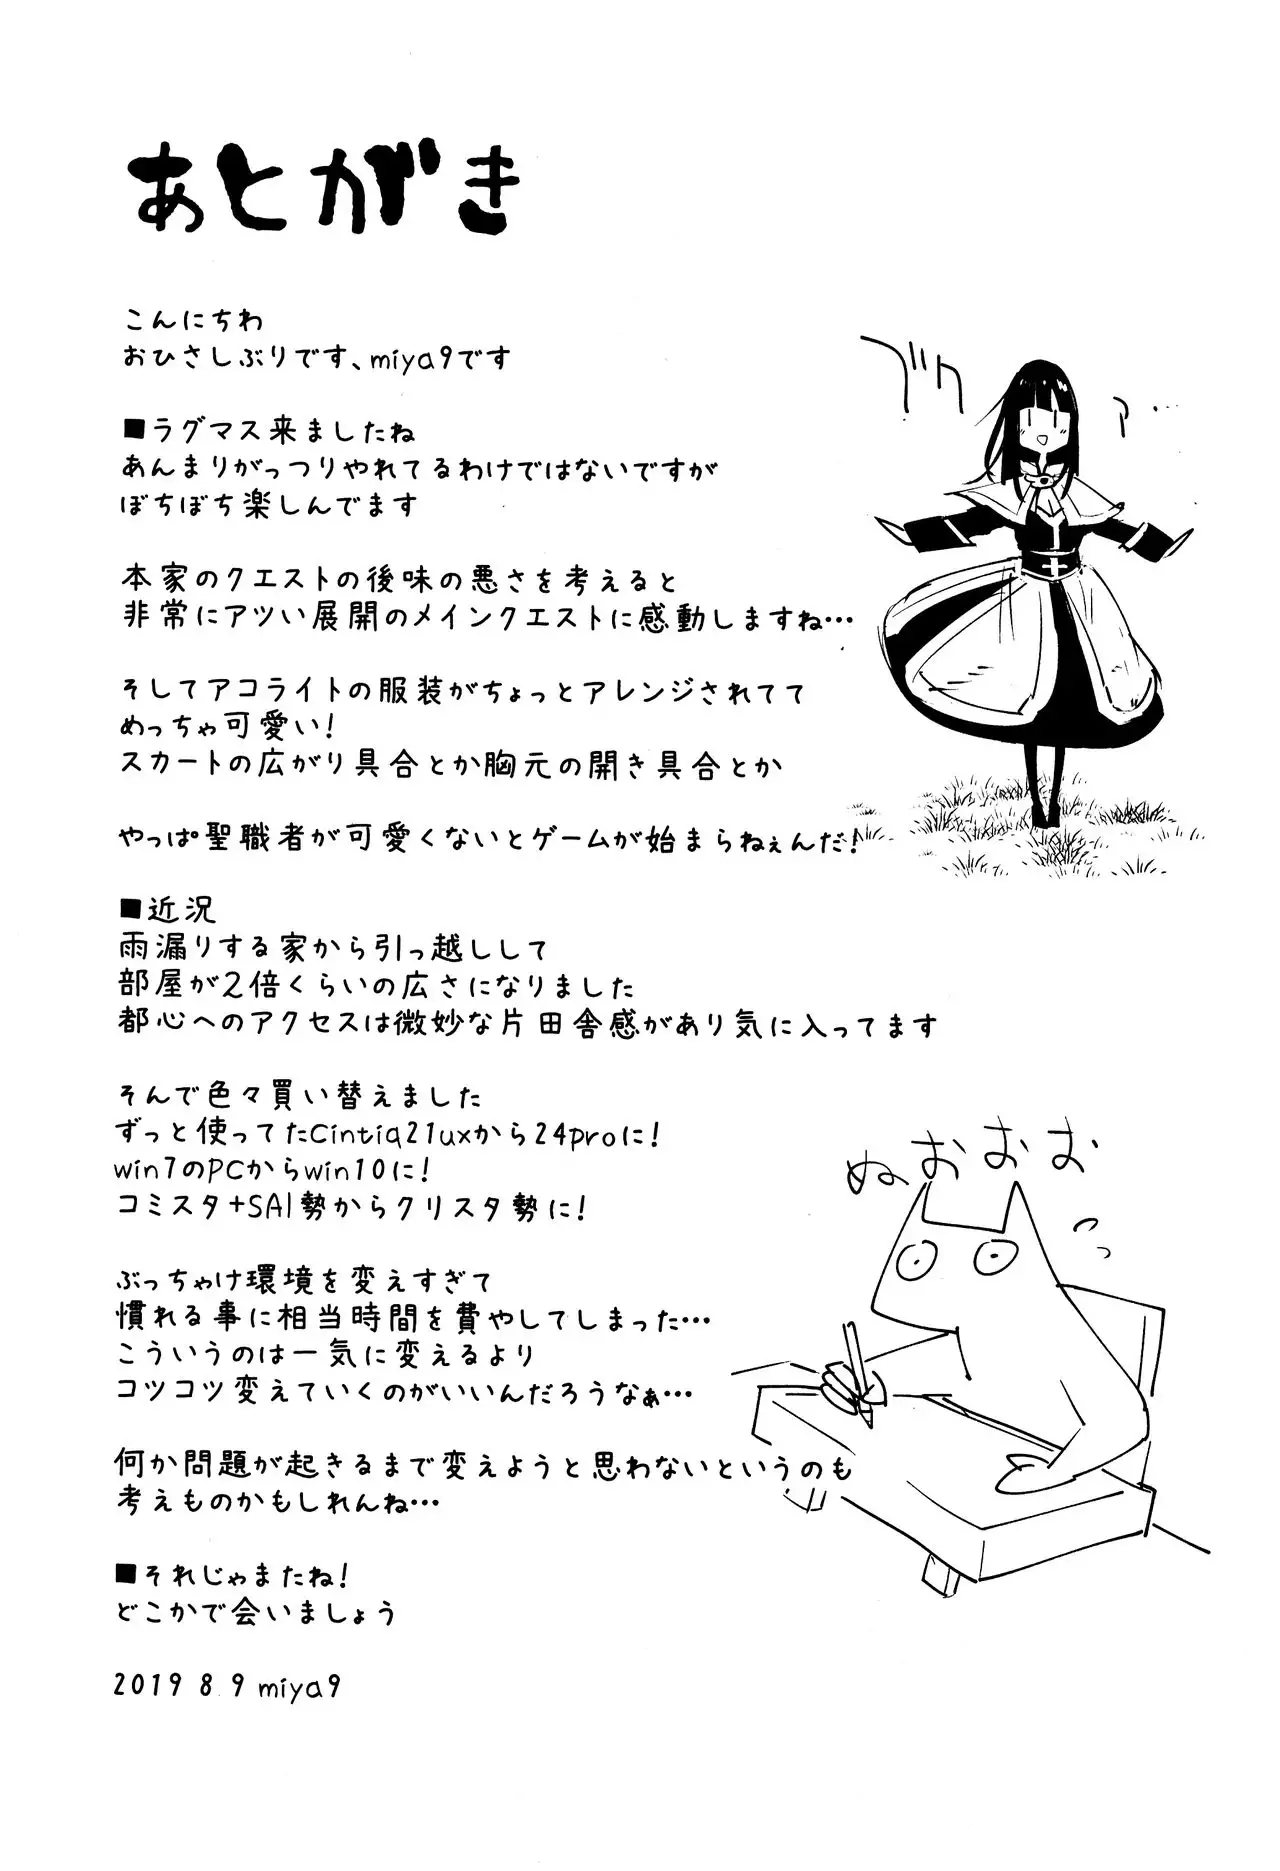 あとがき
こんにちわ
おひさしぶりです、miya9です
■ラグマス来ましたね
あんまりがっつりやれてるわけではないですが
ぼちぼち楽しんでます
本家のクエストの後味の悪さを考えると
非常にアツい展開のメインクエストに感動しますね…
そしてアコライトの服装がちょっとアレンジされてて
めっちゃ可愛い!
スカートの広がり具合とか胸元の開き具合とか
やっぱ聖職者が可愛くないとゲームが始まらねぇんだ!
■近況
雨漏りする家から引っ越しして
部屋が2倍くらいの広さになりました
都心へのアクセスは微妙な片田舎感があり気に入ってます
そんで色々買い替えました
ずっと使ってたCintiq21uxから24proに!
win7のPCからwin10に!
コミスタ+SAI勢からクリスタ勢に!
ぶっちゃけ環境を変えすぎて
慣れる事に相当時間を費やしてしまった…
こういうのは一気に変えるより
コツコツ変えていくのがいいんだろうなぁ…
何か問題が起きるまで変えようと思わないというのも
考えものかもしれんね…
■それじゃまたね!
どこかで会いましょう
2019 8.9 miya9
ぬおおお